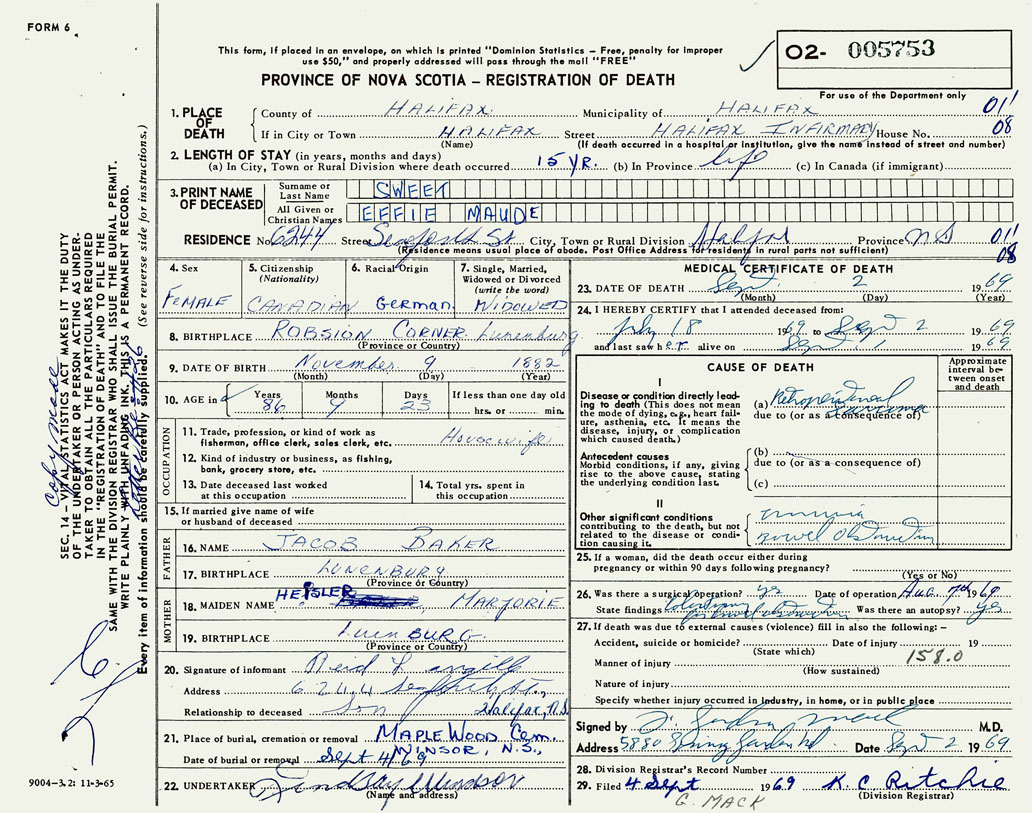 FORM 6
This form, if placed in an envelope, on which is printed "Dominion Statistics – Free, penalty for improper
use $50," and properly addressed will pass through the mail "FREE"
PROVINCE OF NOVA SCOTIA – REGISTRATION OF DEATH
02- 005753
For use of the Department only
1. PLACE OF DEATH
County of HALIFAX Municipality of HALIFAX 011
If in City or Town HALIFAX Street HALIFAX INFIRMARY House No. 08
(Name) (If death occurred in a hospital or institution, give the name instead of street and number)
2. LENGTH OF STAY (in years, months and days)
(a) In City, Town or Rural Division where death occurred 15 YR. (b) In Province life (c) In Canada (if immigrant)
3. PRINT NAME OF DECEASED
Surname or Last Name SWEET
All Given or Christian Names EFFIE MAUDE
RESIDENCE No. 6244 Street Seaforth St City, Town or Rural Division Halifax Province NS 011
(Residence means usual place of abode. Post Office Address for residents in rural parts not sufficient) 08
4. Sex FEMALE
5. Citizenship (Nationality) CANADIAN
6. Racial Origin German
7. Single, Married, Widowed or Divorced (write the word) WIDOWED
8. BIRTHPLACE ROBSION CORNER Lunenburg
(Province or Country)
9. DATE OF BIRTH November 9 1882
(Month) (Day) (Year)
10. AGE in Years 86 Months 9 Days 23 If less than one day old hrs. or min.
OCCUPATION
11. Trade, profession, or kind of work as fisherman, office clerk, sales clerk, etc. Housewife
12. Kind of industry or business, as fishing, bank, grocery store, etc.
13. Date deceased last worked at this occupation
14. Total yrs. spent in this occupation
15. If married give name of wife or husband of deceased
FATHER
16. NAME JACOB BAKER
17. BIRTHPLACE LUNENBURG
(Province or Country)
MOTHER
18. MAIDEN NAME HEISLER MARJORIE
19. BIRTHPLACE LUENBURG
(Province or Country)
20. Signature of informant Reid L
Address 6244 Seaforth St.,
Relationship to deceased Son Halifax, N.S.
21. Place of burial, cremation or removal MAPLEWOOD Cem.
WINSOR, N.S.,
Date of burial or removal Sept 4/69
22. UNDERTAKER Windsor
(Name and address)
MEDICAL CERTIFICATE OF DEATH
23. DATE OF DEATH Sept 2 1969
(Month) (Day) (Year)
24. I HEREBY CERTIFY that I attended deceased from:
July 18 1969 to Sept 2 1969
and last saw her alive on Sept 1 1969
CAUSE OF DEATH
Approximate interval between onset and death
I
Disease or condition directly leading to death (This does not mean the mode of dying, e.g., heart failure, asthenia, etc. It means the disease, injury, or complication which caused death.)
(a) Retroperitoneal Sarcoma
due to (or as a consequence of)
Antecedent causes
Morbid conditions, if any, giving rise to the above cause, stating the underlying condition last.
(b)
due to (or as a consequence of)
(c)
II
Other significant conditions contributing to the death, but not related to the disease or condition causing it.
bowel obstruction
25. If a woman, did the death occur either during pregnancy or within 90 days following pregnancy?
(Yes or No)
26. Was there a surgical operation? yes Date of operation Aug. 7th 1969
State findings Was there an autopsy? yes
27. If death was due to external causes (violence) fill in also the following: –
Accident, suicide or homicide? Date of injury 19
(State which) 158.0
Manner of injury
(How sustained)
Nature of injury
Specify whether injury occurred in industry, in home, or in public place
Signed by M.D.
Address 5880 Spring Garden Rd Date Sept 2 1969
28. Division Registrar's Record Number
29. Filed 4 Sept 1969 K. C. Ritchie
G. MACK (Division Registrar)
SEC. 14 – VITAL STATISTICS ACT MAKES IT THE DUTY
OF THE UNDERTAKER OR PERSON ACTING AS UNDER-
TAKER TO OBTAIN ALL THE PARTICULARS REQUIRED
IN THE "REGISTRATION OF DEATH" AND TO FILE THE
SAME WITH THE DIVISION REGISTRAR WHO SHALL ISSUE THE BURIAL PERMIT.
WRITE PLAINLY WITH UNFADING INK. THIS IS A PERMANENT RECORD.
Every item of information should be carefully supplied. (See reverse side for instructions.)
copy made
9004-3.2: 11-3-65